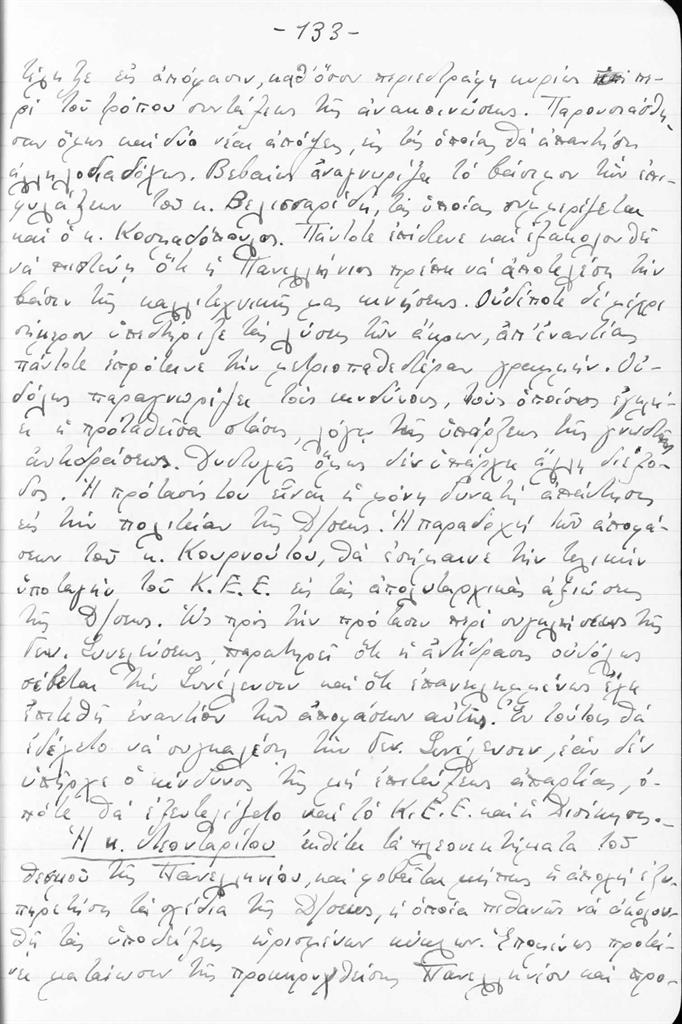 -133-
εἰς ἀπόφασιν, καθ' ὅσον περιεστράφη κυρίως πε-
ρί τοῦ τρόπου συντάξεως τῆς ἀνακοινώσεως. Παρουσιάσθη-
σαν ὅμως καί δύο νέαι ἀπόψεις, εἰς τάς ὁποίας θά ἀπαντήσῃ
ἀλληλοδιαδόχως. Βεβαίως ἀναγνωρίζει τό βάσιμον τῶν ἐπι-
φυλάξεων τοῦ κ. Βελισσαρίδη, τάς ὁποίας συμμερίζεται
καί ὁ κ. Κοσμαδόπουλος. Πάντοτε ἐπίστευε καί ἐξακολουθεῖ
νά πιστεύῃ ὅτι ἡ Πανελλήνιος πρέπει νά ἀποτελέσῃ τήν
βάσιν τῆς καλλιτεχνικῆς μας κινήσεως. Οὐδέποτε δέ μέχρι
σήμερον ὑπεστήριξε τάς λύσεις τῶν ἄκρων, ἀπ' ἐναντίας
πάντοτε ἐπρότεινε τήν μετριοπαθεστέραν γραμμήν. Οὐ-
δόλως παραγνωρίζει τούς κινδύνους, τούς ὁποίους ἐγκλεί-
ει ἡ προταθεῖσα στάσις, λόγῳ τῆς ὑπάρξεως τῆς γνωστῆς
ἀντιδράσεως. Δυστυχῶς ὅμως δέν ὑπάρχει ἄλλη διέξο-
δος. Ἡ πρότασίς του εἶναι ἡ μόνη δυνατή ἀπάντησις
εἰς τήν πολιτείαν τῆς Δ/σεως. Ἡ παραδοχή τῶν ἀποφά-
σεων τοῦ κ. Κουρνούτου, θά ἐσήμαινε τήν τελικήν
ὑποταγήν τοῦ Κ.Ε.Ε. εἰς τάς ἀπολυταρχικάς ἀξιώσεις
τῆς Δ/σεως. Ὡς πρός τήν πρότασιν περί συγκλήσεως τῆς
Γεν. Συνελεύσεως, παρατηρεῖ ὅτι ἡ ἀντίδρασις οὐδόλως
σέβεται τήν Συνέλευσιν καί ὅτι ἐπανειλημμένως ἔχει
ἐπιτεθῆ ἐναντίον τῶν ἀποφάσεων αὐτῆς. Ἐν τούτοις θά
ἐδέχετο νά συγκαλέσῃ τήν Γεν. Συνέλευσιν, ἐάν δέν
ὑπῆρχε ὁ κίνδυνος τῆς μή ἐπιτεύξεως ἀπαρτίας, ὁ-
πότε θά ἐξευτελίζετο καί τό Κ.Ε.Ε. καί ἡ Διοίκησις.-
Ἡ κ. ἐκθέτει τά πλεονεκτήματα τοῦ
θεσμοῦ τῆς Πανελληνίου, καί φοβεῖται μήπως ἡ ἀποχή ἐξυ-
πηρετήσῃ τά σχέδια τῆς Δ/σεως, ἡ ὁποία πιθανῶς νά ἀκολου-
θῇ τάς ὑποδείξεις ὡρισμένων κύκλων. Ἑπομένως προτεί-
νει ματαίωσιν τῆς προκηρυχθείσης Πανελληνίου καί προ-